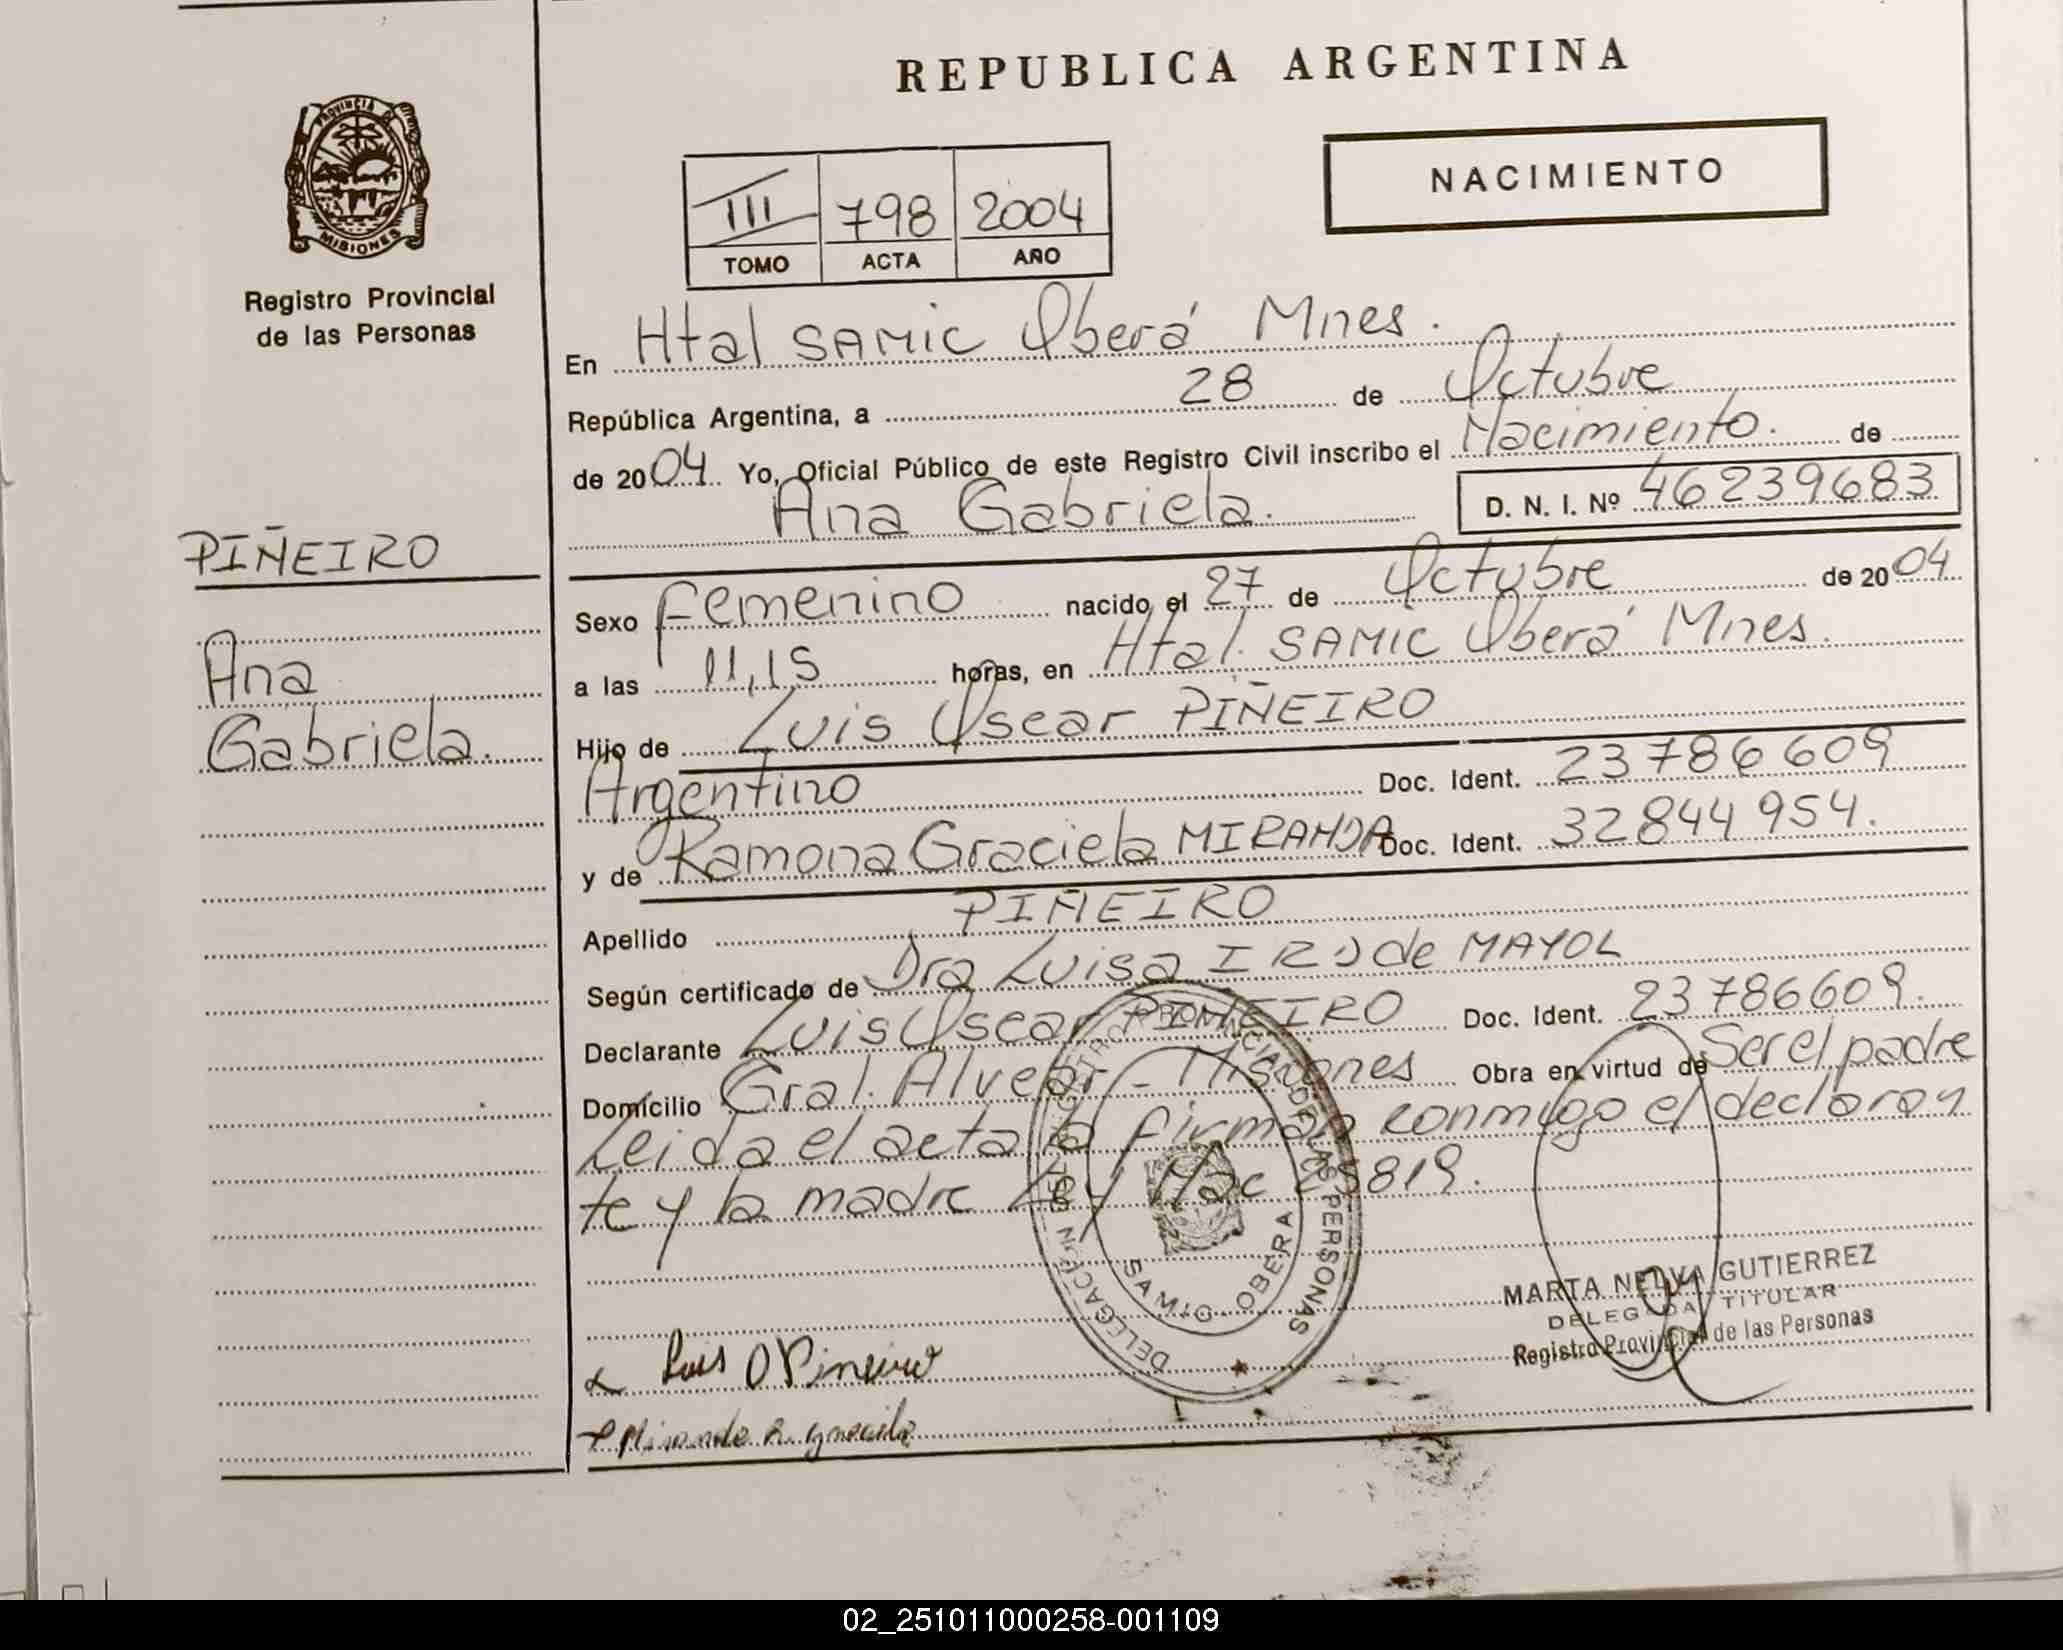 REPUBLICA ARGENTINA
PROVINCIA DE
MISIONES
Registro Provincial
de las Personas
NACIMIENTO
III 798 2004
TOMO ACTA AÑO
En Htal SAMIC Oberá Mnes.
República Argentina, a 28 de Octubre
de 2004. Yo, Oficial Público de este Registro Civil inscribo el Nacimiento. de
Ana Gabriela. D. N. I. Nº 46239683
PIÑEIRO
Ana
Gabriela.
Sexo Femenino nacido el 27 de Octubre de 2004
a las 11,15 horas, en Htal. SAMIC Oberá Mnes.
Hijo de Luis Oscar PIÑEIRO
Argentino Doc. Ident. 23786609
y de Ramona Graciela MIRANDA Doc. Ident. 32844954.
Apellido PIÑEIRO
Según certificado de Dra Luisa de MAYOL
Declarante Luis Oscar PIÑEIRO Doc. Ident. 23786609.
Domicilio Gral. Alvear - Misiones Obra en virtud de Ser el padre
Leida el acta la firman conmigo el declaran
te y la madre Ley Nac 25819.
REGISTRO PROVINCIAL DE LAS PERSONAS
DELEGACION
SAMIC OBERA
MARTA NELVA GUTIERREZ
DELEGADA TITULAR
Registro Provincial de las Personas
Luis O Piñeiro
Miranda R. graciela
02_251011000258-001109